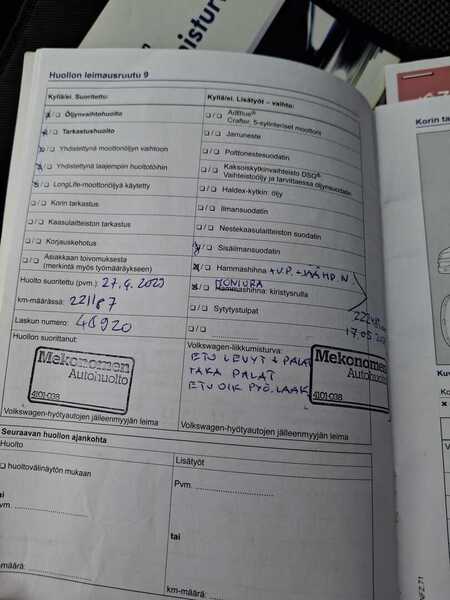 misturv
Huollon leimausruutu 9
Kyllä/ei. Suoritettu:
Kyllä/ei. Lisätyöt – vaihto:
Öljynvaihtohuolto
AdBlue®
Crafter, 5-sylinteriset moottorit
Tarkastushuolto
Jarruneste
Yhdistettynä moottoriöljyn vaihtoon
Polttonestesuodatin
Yhdistettynä laajempiin huoltotöihin
Kaksoiskytkinvaihteisto DSQ®:
Vaihteistoöljy ja tarvittaessa öljynsuodatin
LongLife-moottoriöljyä käytetty
Haldex-kytkin: öljy
Korin tarkastus
Ilmansuodatin
Kaasulaitteiston tarkastus
Nestekaasulaitteiston suodatin
Korjauskehotus
Sisäilmansuodatin
Asiakkaan toivomuksesta
(merkintä myös työmääräykseen)
Hammashihna + V.P. + JÄÄHD.N
Huolto suoritettu (pvm.) 27.4.2023
MONIURA
Hammashihna: kiristysrulla
km-määrässä: 221187
Sytytystulpat
Laskun numero: 48920
17.05.
Huollon suorittanut:
Volkswagen-liikkumisturva:
ETU LEVYT + PALAT
TAKA PALAT
ETU OIK PYÖ.LAAK
Mekonomen
Autohuolto
4101-038
Mekonomen
Autohuolto
4101-038
Volkswagen-hyötyautojen jälleenmyyjän leima
Volkswagen-hyötyautojen jälleenmyyjän leima
Seuraavan huollon ajankohta
Huolto
Lisätyöt
huoltovälinäytön mukaan
Pvm.
tai
Pvm.
tai
km-määrä:
km-määrä:
Korin ta